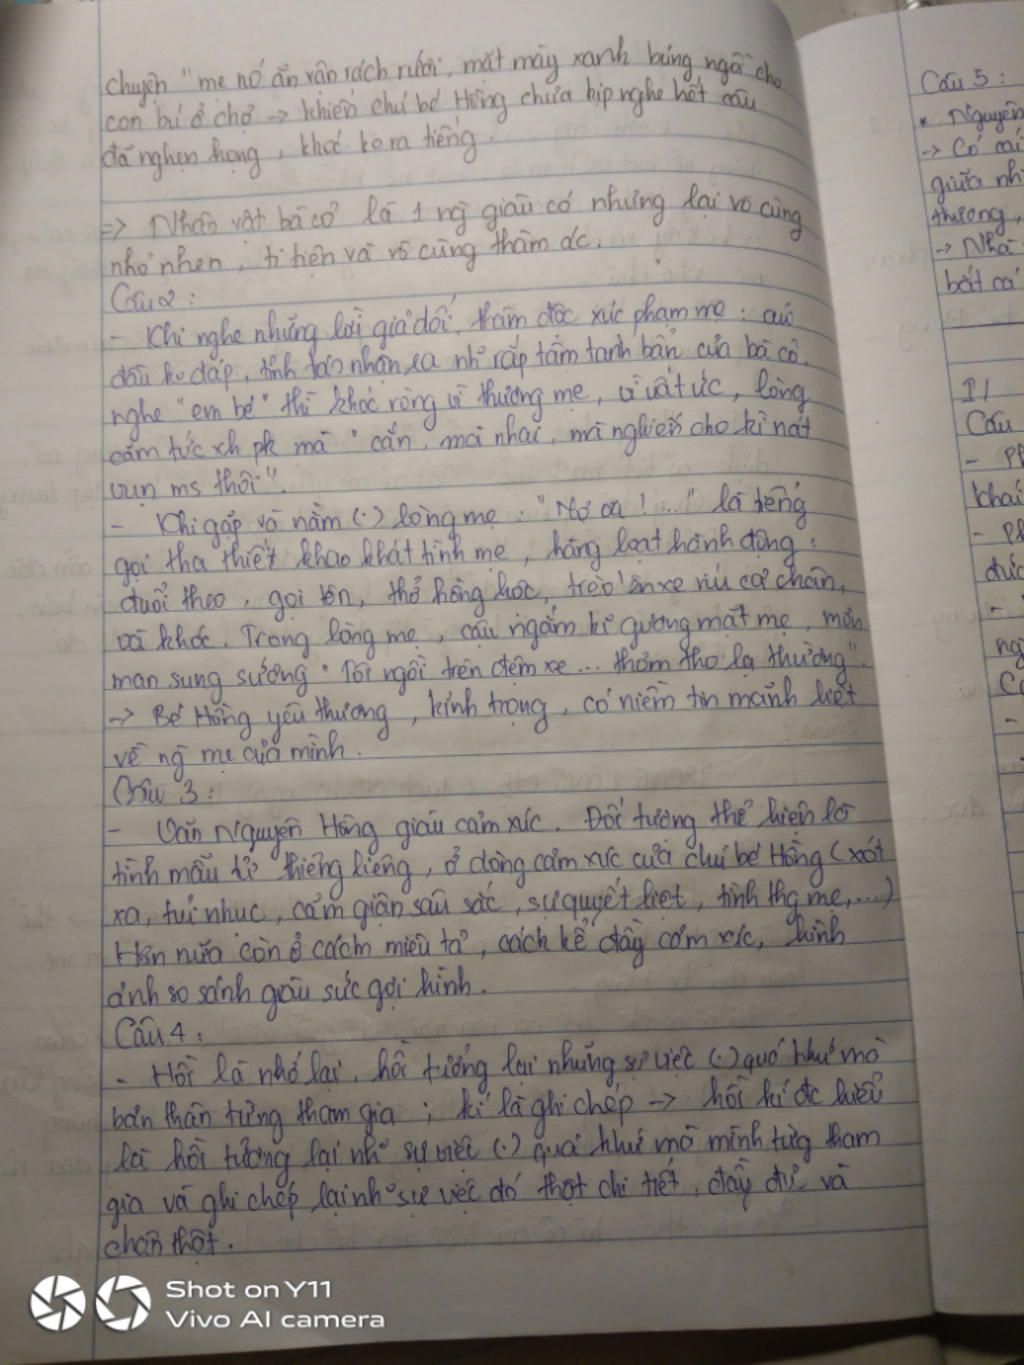 chuyện "mẹ nó ăn vận rách rưới, mặt mày xanh bủng ngồi cho
con bú ở chợ -> khiến chú bé Hồng chưa kịp nghe hết câu
đã nghẹn họng, khóc ko ra tiếng.
=> Nhân vật bà cô là 1 ng giàu có nhưng lại vô cùng
nhỏ nhen, ti tiện và vô cùng thâm ác.
Câu 2:
- Khi nghe những lời giả dối, thâm độc xúc phạm mẹ: cúi
đầu ko đáp, tỉnh táo nhận ra nh~ rắp tâm tanh bẩn của bà cô.
nghe "em bé" thì khóc ròng vì thương mẹ, vì uất ức, lòng
căm tức xh pk mà "cắn, mà nhai, mà nghiến cho kì nát
vụn ms thôi".
- Khi gặp và nằm (.) lòng mẹ: "Mợ ơi!..." là tiếng
gọi tha thiết khao khát tình mẹ, hàng loạt hành động:
đuổi theo, gọi tên, thở hồng hộc, trèo lên xe ríu cả chân,
oà khóc. Trong lòng mẹ, cậu ngắm kĩ gương mặt mẹ, mơn
man sung sướng "Tôi ngồi trên đệm xe... thơm tho lạ thường".
-> Bé Hồng yêu thương, kính trọng, có niềm tin mãnh liệt
về ng mẹ của mình.
Câu 3:
- Văn Nguyên Hồng giàu cảm xúc. Đối tượng thể hiện là
tình mẫu tử thiêng liêng, ở dòng cảm xúc của chú bé Hồng (xót
xa, tủi nhục, căm giận sâu sắc, sự quyết liệt, tình thg mẹ,...)
Hơn nữa còn ở cách miêu tả, cách kể đầy cảm xúc, hình
ảnh so sánh giàu sức gợi hình.
Câu 4:
- Hồi là nhớ lại, hồi tưởng lại những sự việc (.) quá khứ mà
bản thân từng tham gia; kí là ghi chép -> hồi kí đc hiểu
là hồi tưởng lại nh~ sự việc (.) quá khứ mà mình từg tham
gia và ghi chép lại nh~ sự việc đó thật chi tiết, đầy đủ và
chân thật.
Câu 5:
* Nguyên
-> Có
giữa
thương,
->
bất cứ
I/
Câu
-
khái
-
-
Shot on Y11
Vivo AI camera